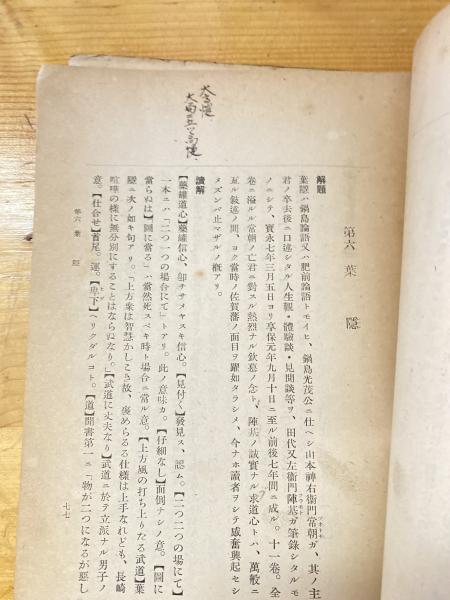 第六 葉隱
解題
葉隱ハ鍋島論語又ハ肥前論語トモイヒ、鍋島光茂公ニ仕ヘシ山本神右衞門常朝ガ、其ノ主
君ノ卒去後ニ口述シタル人生觀・體驗談・見聞談等ヲ、田代又左衞門陣基ガ筆錄シタルモ
ノニシテ、寶永七年三月五日ヨリ享保元年九月十日ニ至ル前後七年間ニ成ル。十一卷。全
卷ニ溢ルル常朝ノ亡君ニ對スル熱烈ナル欽慕ノ念ト、陣基ノ誠實ナル求道心トハ、萬般ニ
亙ル敍述ノ間、ヨク當時ノ佐賀藩ノ面目ヲ躍如タラシメ、今ナホ讀者ヲシテ感奮興起セシ
メズンバ止マザルノ槪アリ。
讀解
【藥罐道心】藥罐信心。卽チサメヤスキ信心。【見付く】發見ス、認ム。【二つ二つの場にて】
一本ニハ「二つ一つの場合にて」トアリ。此ノ意味カ。【仔細なし】面倒ナシノ意。【圖に
當らぬは】「圖に當る」ハ當然死スベキ時ト場合ニ當ル意。【上方風の打ち上りたる武道】葉
隱ニ次ノ如キ句アリ。「上方衆は智慧かしこき故、褒めらるる仕樣は上手なれども、長崎
喧嘩の樣に無分別にすることはならぬなり。」【武道に丈夫なり】武道ニ於テ立派ナル男子ノ
意。【仕合せ】首尾。運。【卑下】ヘリクダルコト。【道】聞書第一ニ「物が二つになるが惡し
第六 葉隱
七七